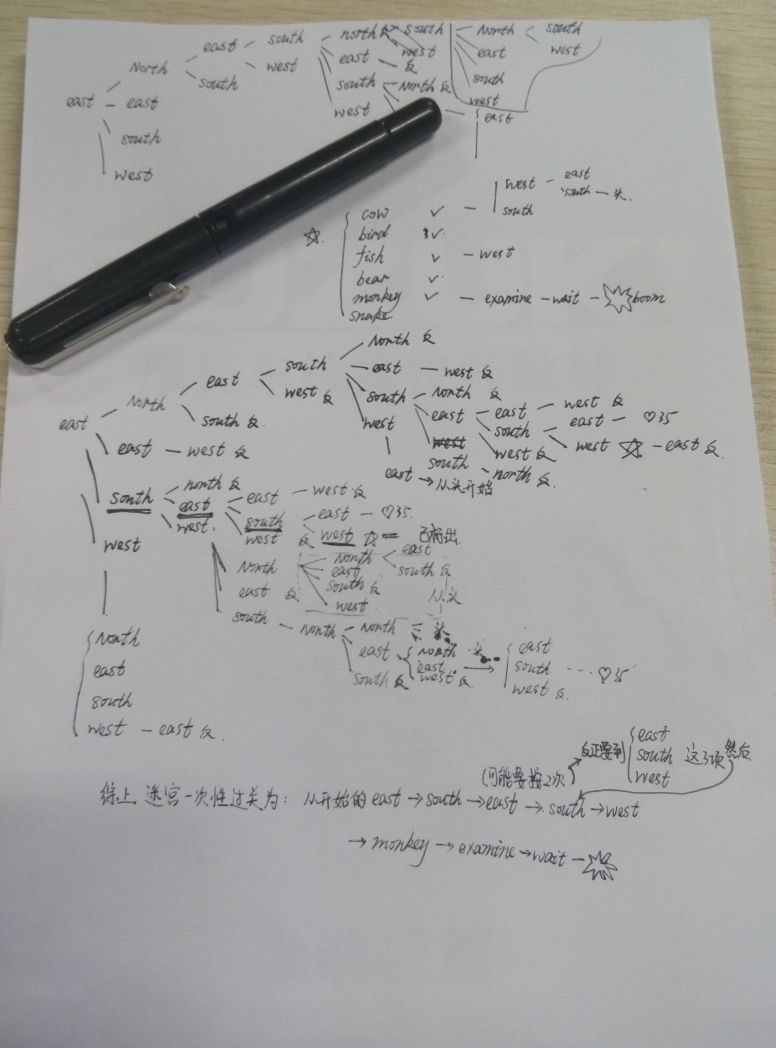 north 反 south North south
east south east west east west
North south west south 反 south
east east south North 反 west
south west east
west
west east
south 头
cow ✓ south
☆ bird ✓
fish ✓ west
bear ✓
monkey ✓ examine wait boom
snake
North 反
south east west 反
east west 反 south North 反
North south 反 east east west 反
east west south east ♡35
east west 反 west west 反 west ☆ east 反
south north 反
east 从头开始
south north 反 east west 反
east south east ♡35
west west 反 west ☆
west North North east
east 反 east south 反
south 反
west 从头
south North North 头
North east North 头 east
east south 反 east south ♡35
south west 反 west 反
west east 反
east
反正要到 south 这3项 然后
(可能要按2次 west
综上 迷宫一次性过关为: 从开始的 east → south → east → south → west
→ monkey → examine → wait